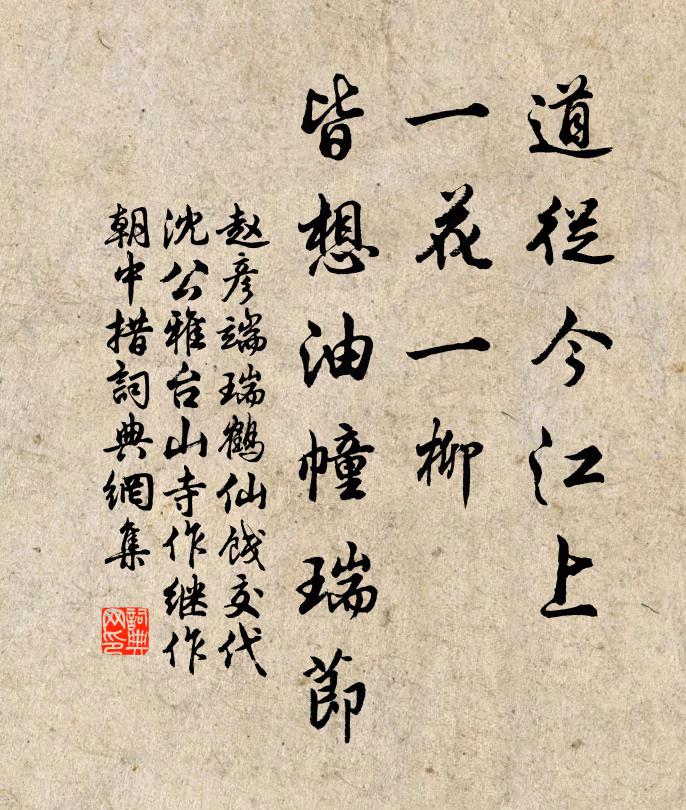 道從今江上
一花一柳
皆想油幢瑞節
赵彦端瑞鶴仙餞交代
沈公雅台山寺作继作
朝中措詞典網集
詞典网印